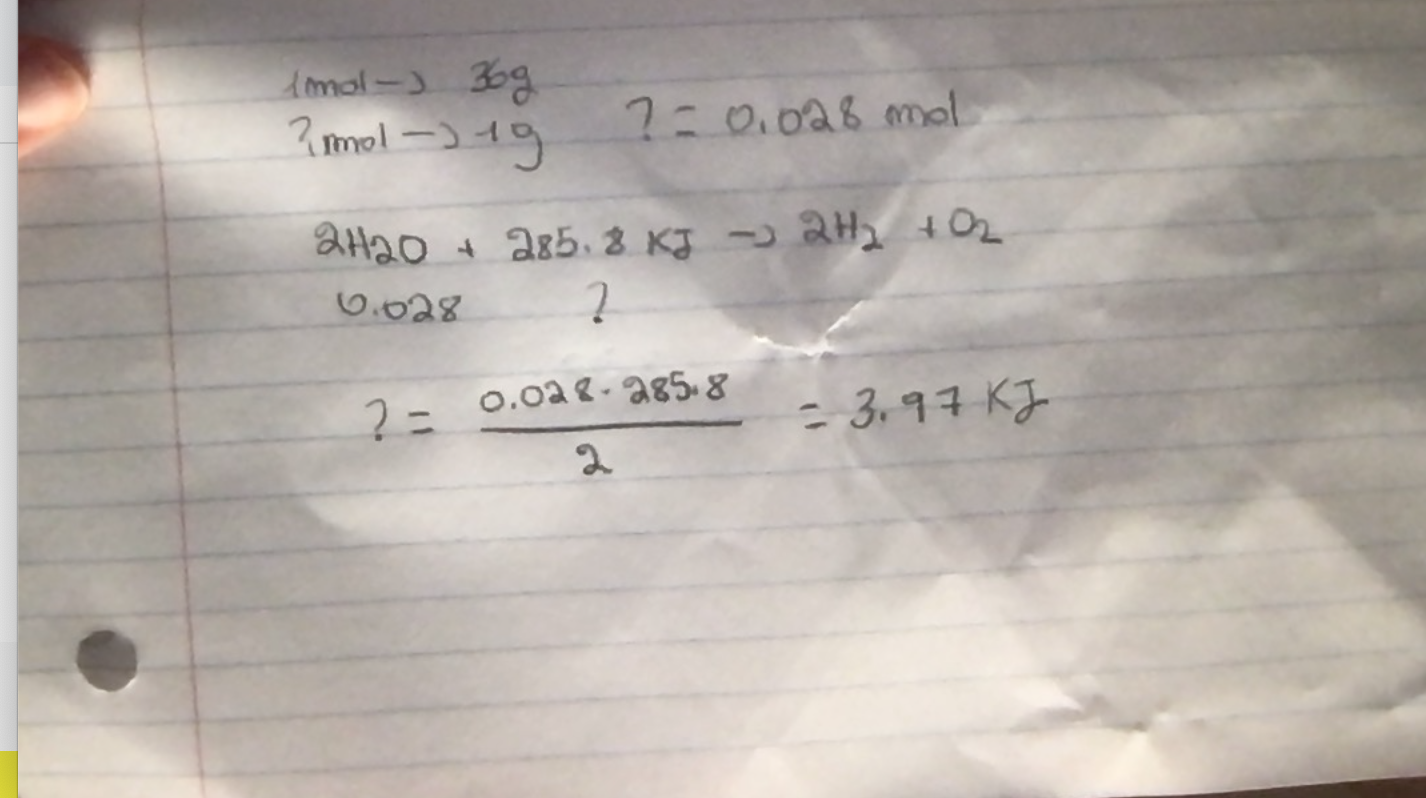 1mol → 36g
?mol → 1g ? = 0.028 mol
2H2O + 285.8 KJ → 2H2 + O2
0.028 ?
? = 0.028 · 285.8 / 2 = 3.97 KJ